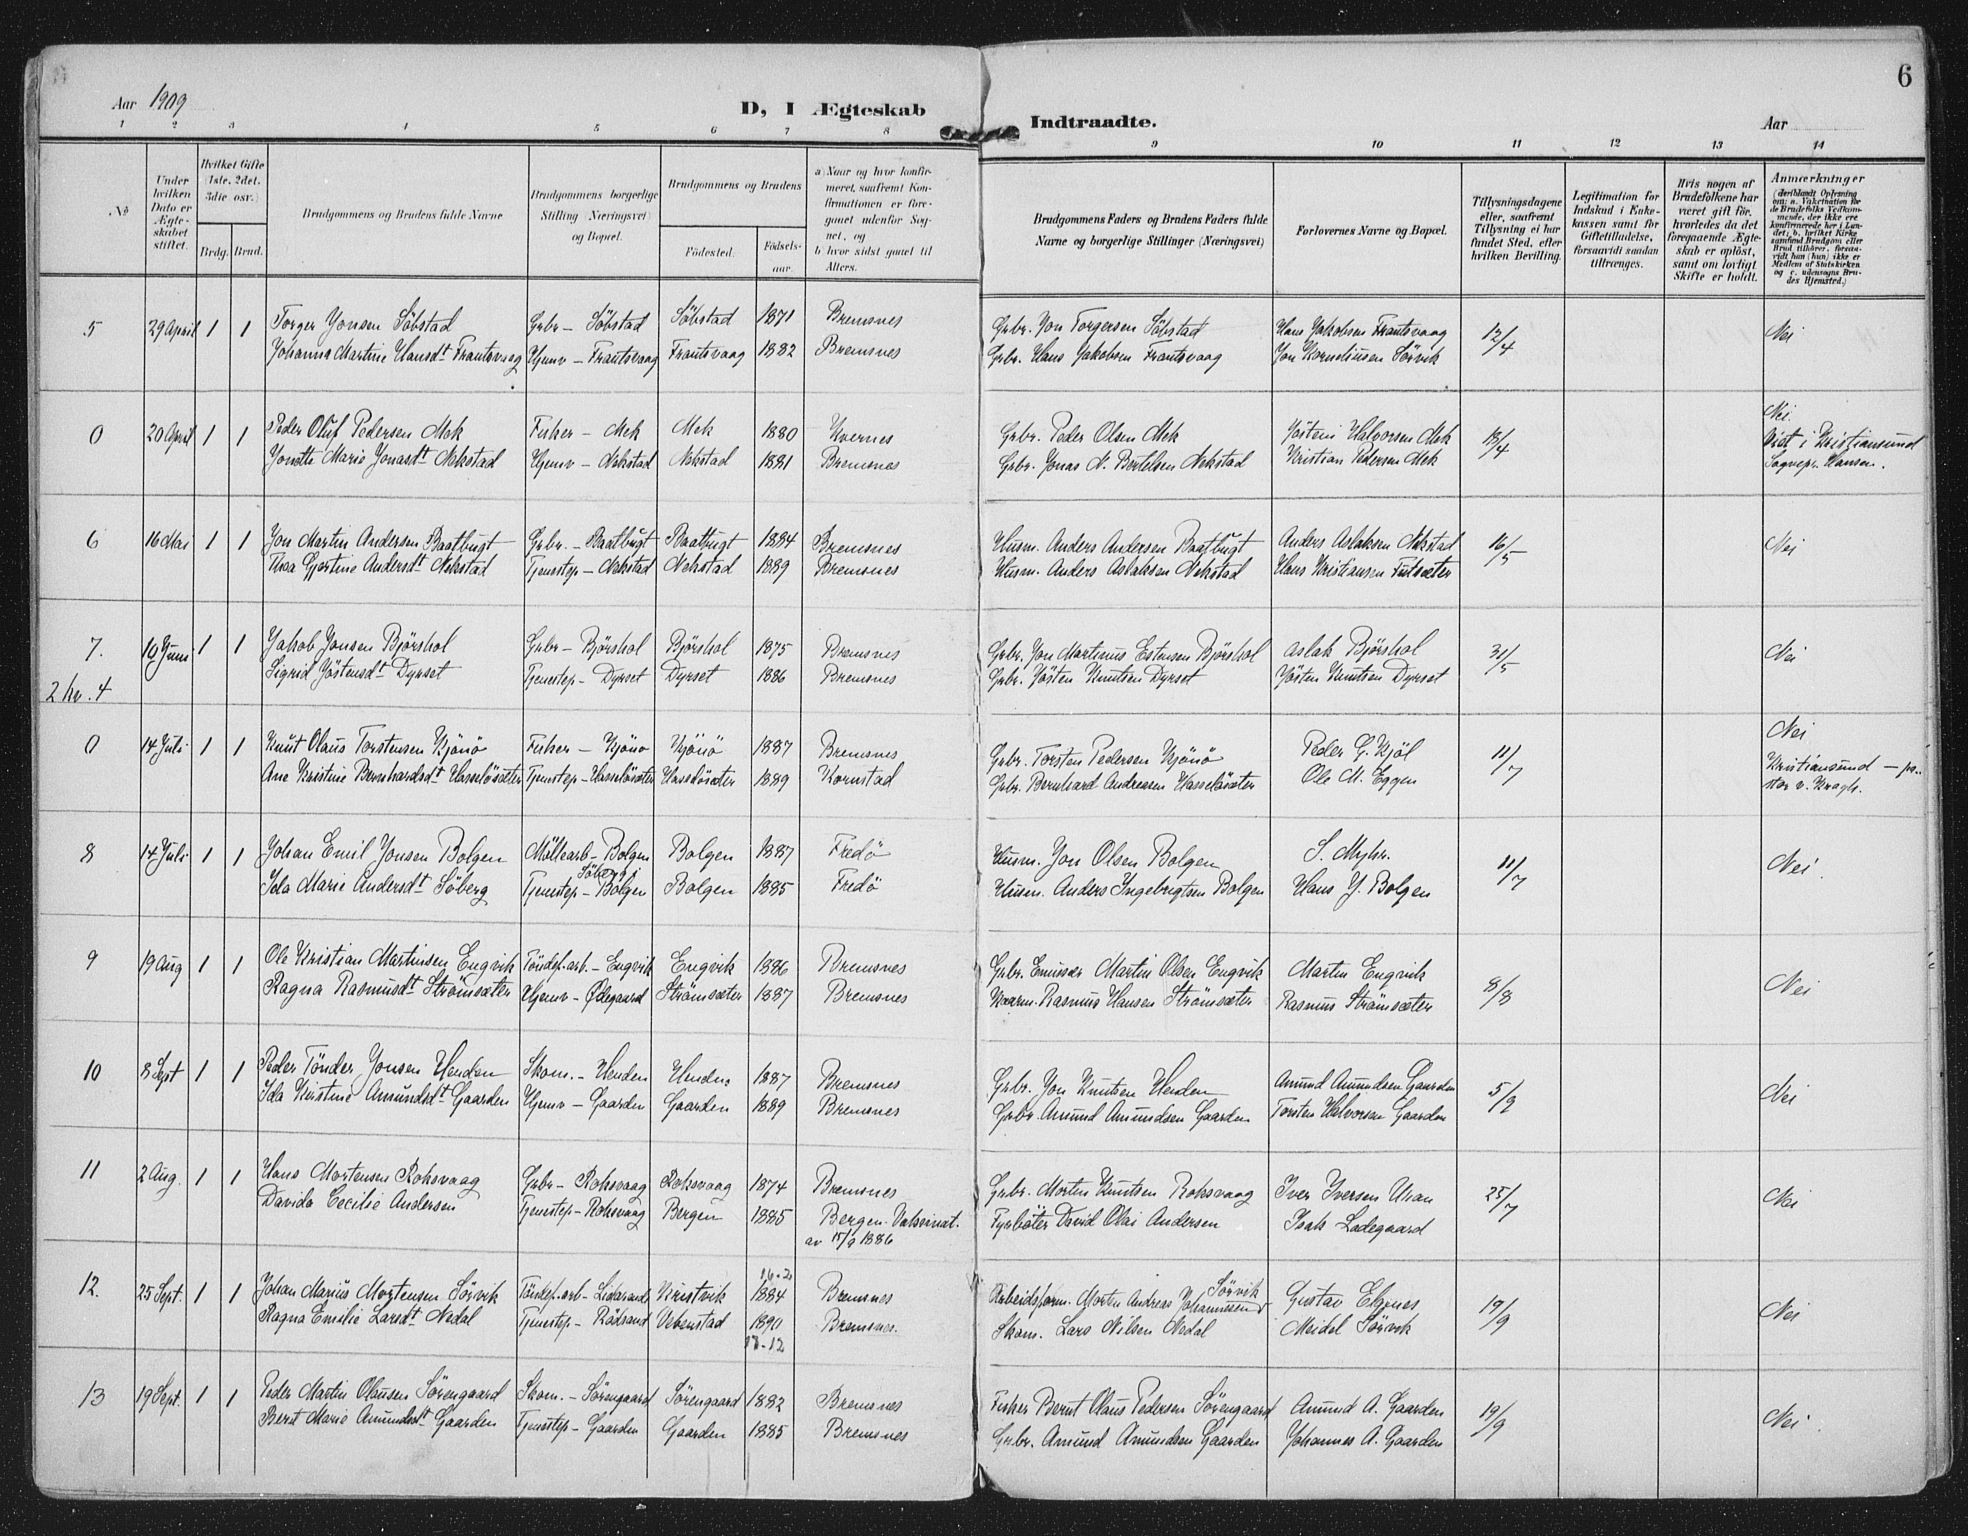 6
Aar 1909
D, I Ægteskab Indtraadte.
Aar
1 2 3 4 5 6 7 8 9 10 11 12 13 14
No
Under hvilken Dato er Ægteskabet stiftet.
Hvilket Gifte (1ste, 2det, 3die osv.)
Brdg. Brud.
Brudgommens og Brudens fulde Navne
Brudgommens borgerlige Stilling (Næringsvei) og Bopæl.
Brudgommens og Brudens
Fødested. Fødselsaar.
a) Naar og hvor konfirmeret, saafremt Konfirmationen er foregaaet udenfor Sognet, og
b) hvor sidst gaaet til Alters.
Brudgommens Faders og Brudens Faders fulde Navne og borgerlige Stillinger (Næringsvei)
Forlovernes Navne og Bopæl.
Tillysningsdagene eller, saafremt Tillysning ei har fundet Sted, efter hvilken Bevilling.
Legitimation for Indskud i Enkekassen samt for Giftetilladelse, forsaavidt saadan tiltrænges.
Hvis nogen af Brudefolkene har været gift før, hvorledes da det foregaaende Ægteskab er opløst, samt om lovligt Skifte er holdt.
Anmærkninger
5 29 April 1 1 Torger Jonsen Söbstad Grbr – Söbstad Söbstad 1871 Bremsnes Grbr. Jon Torgersen Söbstad Hans Jakobsen Frantsvaag 12/4 Nei
Johanna Martine Hansdt Frantsvaag Hjemv – Frantsvaag Frantsvaag 1882 Bremsnes Grbr. Hans Jakobsen Frantsvaag Jon Kornelinsen Sörvik
0 20 April 1 1 Peder Oluf Pedersen Mek Fisker – Mek Mek 1880 Kvernes Grbr. Peder Olsen Mek Jöstein Halvorsen Mek 18/4 Nei.
Jonette Marie Jonasdt Nekstad Hjemv – Nekstad Nekstad 1881 Bremsnes Grbr. Jonas N. Bertelsen Nekstad Kristian Pedersen Mek Viet i Kristiansund
Sognepr. Hansen.
6 16 Mai 1 1 Jon Martin Andersen Baatbugt Grbr. – Baatbugt Baatbugt 1884 Bremsnes Husm. Anders Andersen Baatbugt Anders Aslaksen Nekstad 16/5 Nei
Gjertine Andersdt Nekstad Tjenestep – Nekstad Nekstad 1889 Bremsnes Husm. Anders Aslaksen Nekstad Hans Kristiansen Futsæter
7. 10 Juni 1 1 Jakob Jonsen Björshol Grbr – Björshol Björshol 1875 Bremsnes Grbr. Jon Martinus Estensen Björshol Aslak Björshol 31/5 Nei
Sigrid Jöstensdt Dyrset Tjenestep – Dyrset Dyrset 1886 Bremsnes Grbr. Jösten Knutsen Dyrset Jösten Knutsen Dyrset
2 hv. 4
0 14 Juli 1 1 Knut Olaus Torstensen Kjönö Fisker – Kjönö Kjönö 1887 Bremsnes Grbr. Torsten Pedersen Kjönö Peder G. Kjöl 11/7 Nei
Ane Kristine Bernhardsdt Hasselösæter Tjenestep – Hasselösæter Hasselösæter 1889 Kornstad Grbr. Bernhard Andreasen Hasselösæter Ole M. Eggen Kristiansund – pa-
stor v. Kragh.
8 14 Juli 1 1 Johan Emil Jonsen Bolgen Möllearb – Bolgen Bolgen 1887 Fredö Husm. Jon Olsen Bolgen S. Myhr. 11/7 Nei
Ida Marie Andersdt Söberg Tjenestep – Söberg i Bolgen Bolgen 1885 Fredö Husm. Anders Ingebrigtsen Bolgen Hans J. Bolgen
9 19 Aug 1 1 Ole Kristian Martinsen Engvik Töndef.arb. – Engvik Engvik 1886 Bremsnes Grbr. Emissær Martin Olsen Engvik Martin Engvik 8/8 Nei
Ragna Rasmusdt Strömsæter Hjemv – Ødegaard Strömsæter 1887 Bremsnes Kaarm. Rasmus Hansen Strömsæter Rasmus Strömsæter
10 8 Sept 1 1 Peder Tönder Jonsen Henden Skom. – Henden Henden 1887 Bremsnes Grbr. Jon Knutsen Henden Amund Amundsen Gaarden 5/9 Nei
Ida Kristine Amundsdt Gaarden Hjemv – Gaarden Gaarden 1889 Bremsnes Grbr Amund Amundsen Gaarden Torsten Halvorsen Gaarden
11 2 Aug. 1 1 Hans Mortensen Roksvaag Grbr – Roksvaag Roksvaag 1874 Bremsnes Grbr. Morten Knutsen Roksvaag Iver Iversen Uran 25/7 Nei
Davida Cecilie Andersen Tjenestep – Roksvaag Bergen 1885 Bergen. Vaksinat. Fyrböter David Olai Andersen Isak Ladegaard
av 15/9 1886
12. 25 Sept. 1 1 Johan Marius Mortensen Sörvik Töndef.arb – Lidarande Kristvik 16-2 1884 Bremsnes Arbeidsform. Morten Andreas Johannesen Sörvik Gustav Elgenes 19/9 Nei
Ragna Emilie Larsdt Nedal Tjenestep – Rådsand Vebenstad 1890 Bremsnes. Skom. Lars Nilsen Nedal Meidel Sörvik
13 19 Sept. 1 1 Peder Martin Olausen Sörengaard Skom. – Sörengaard Sörengaard 1882 Bremsnes Fisker Bernt Olaus Pedersen Sörengaard Amund A. Gaarden 19/9 Nei
Berit Marie Amundsdt Gaarden Tjenestep – Gaarden Gaarden 1885 Bremsnes Grbr. Amund Amundsen Gaarden Johannes A. Gaarden